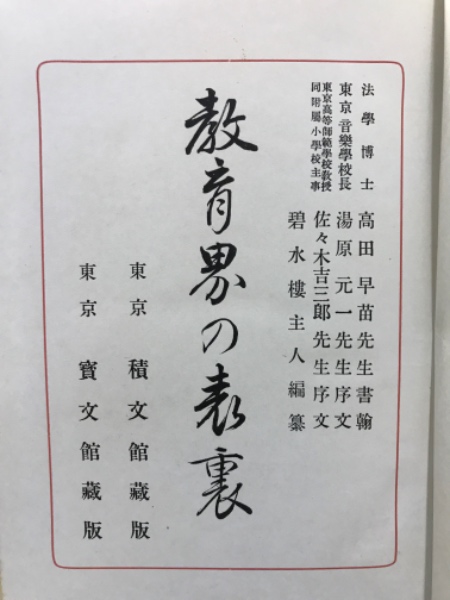 法學博士 高田早苗先生書翰
東京音樂學校長 湯原元一先生序文
東京高等師範學校教授
同附屬小學校主事 佐々木吉三郎先生序文
碧水樓主人編纂
教育界の表裏
東京 積文館藏版
東京 寶文館藏版